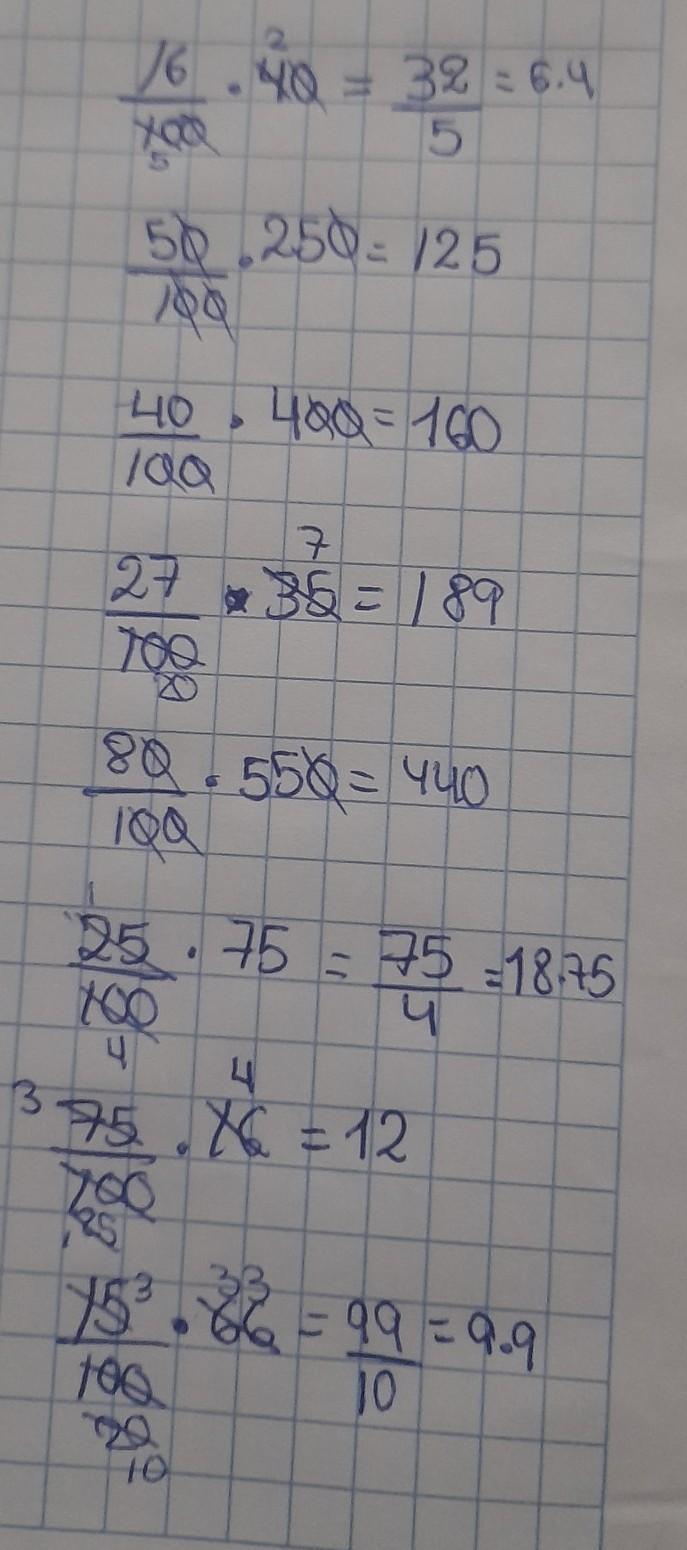 16/100 · 40 = 32/5 = 6.4
2
5
50/100 · 250 = 125
40/100 · 400 = 160
7
27/100 · 35 0 = 189
20
80/100 · 550 = 440
1
25/100 · 75 = 75/4 = 18.75
4
3 4
75/100 · 16 = 12
25
3 33
15/100 · 66 = 99/10 = 9.9
20
10